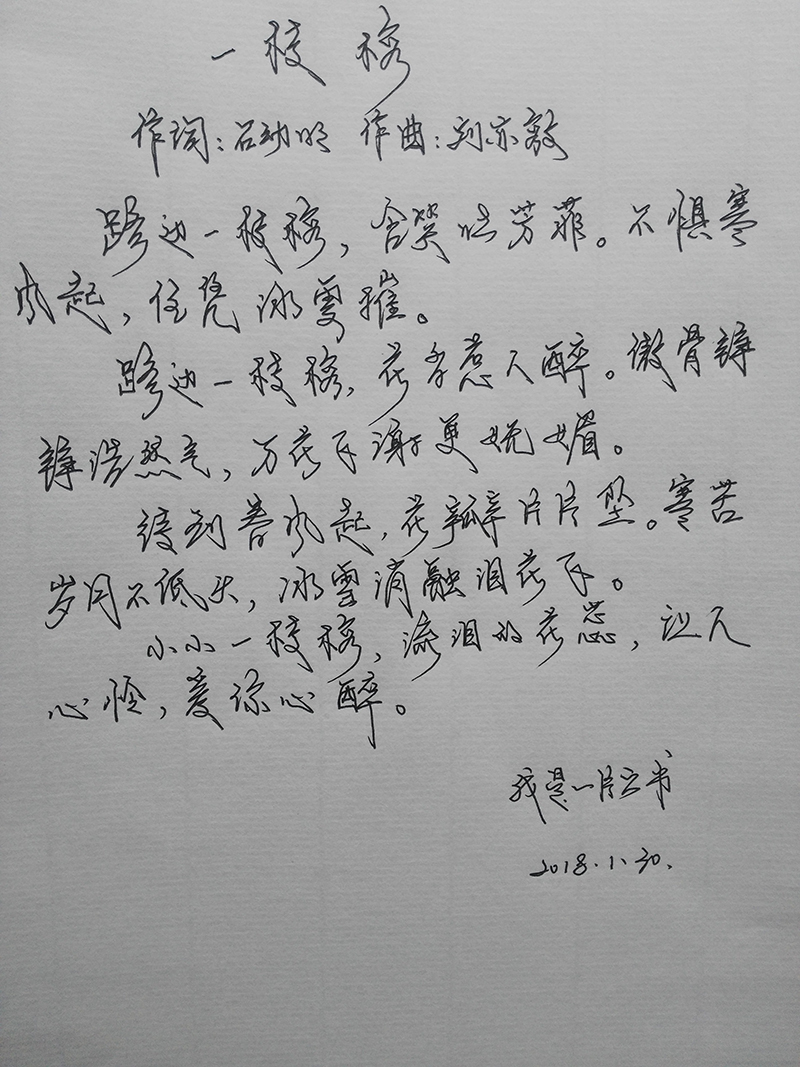 一枝梅
作词:石劲松 作曲:刘亦敏
路边一枝梅,含笑吐芳菲。不惧寒
风起,任凭冰雪摧。
路边一枝梅,花香惹人醉。傲骨铮
铮浩然气,万花下谢更妩媚。
待到春风起,花瓣片片坠。寒苦
岁月不低头,冰雪消融泪花下。
小小一枝梅,流泪的花蕊,让人
心怜,爱你心醉。
我是一片云书
2018.1.30.